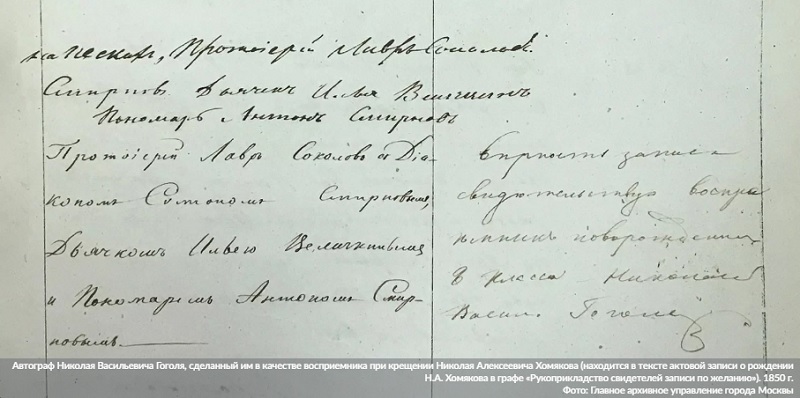 на пескахъ, Протоіерей Лавръ Соколовъ.
Смирновъ Дьячекъ Илья Величкинъ
Пономарь Антонъ Смирновъ
Протоіерей Лавръ Соколовъ съ Діа-
кономъ Смирновымъ,
Дьячкомъ Ильею Величкинымъ
и Пономаремъ Антономъ Смир-
новымъ.
Верность записи
свидетельствую воспри
емникъ новорожденнаго
8 класса Николай
Васил. Гоголь
Автограф Николая Васильевича Гоголя, сделанный им в качестве восприемника при крещении Николая Алексеевича Хомякова (находится в тексте актовой записи о рождении
Н.А. Хомякова в графе «Рукоприкладство свидетелей записи по желанию»). 1850 г.
Фото: Главное архивное управление города Москвы